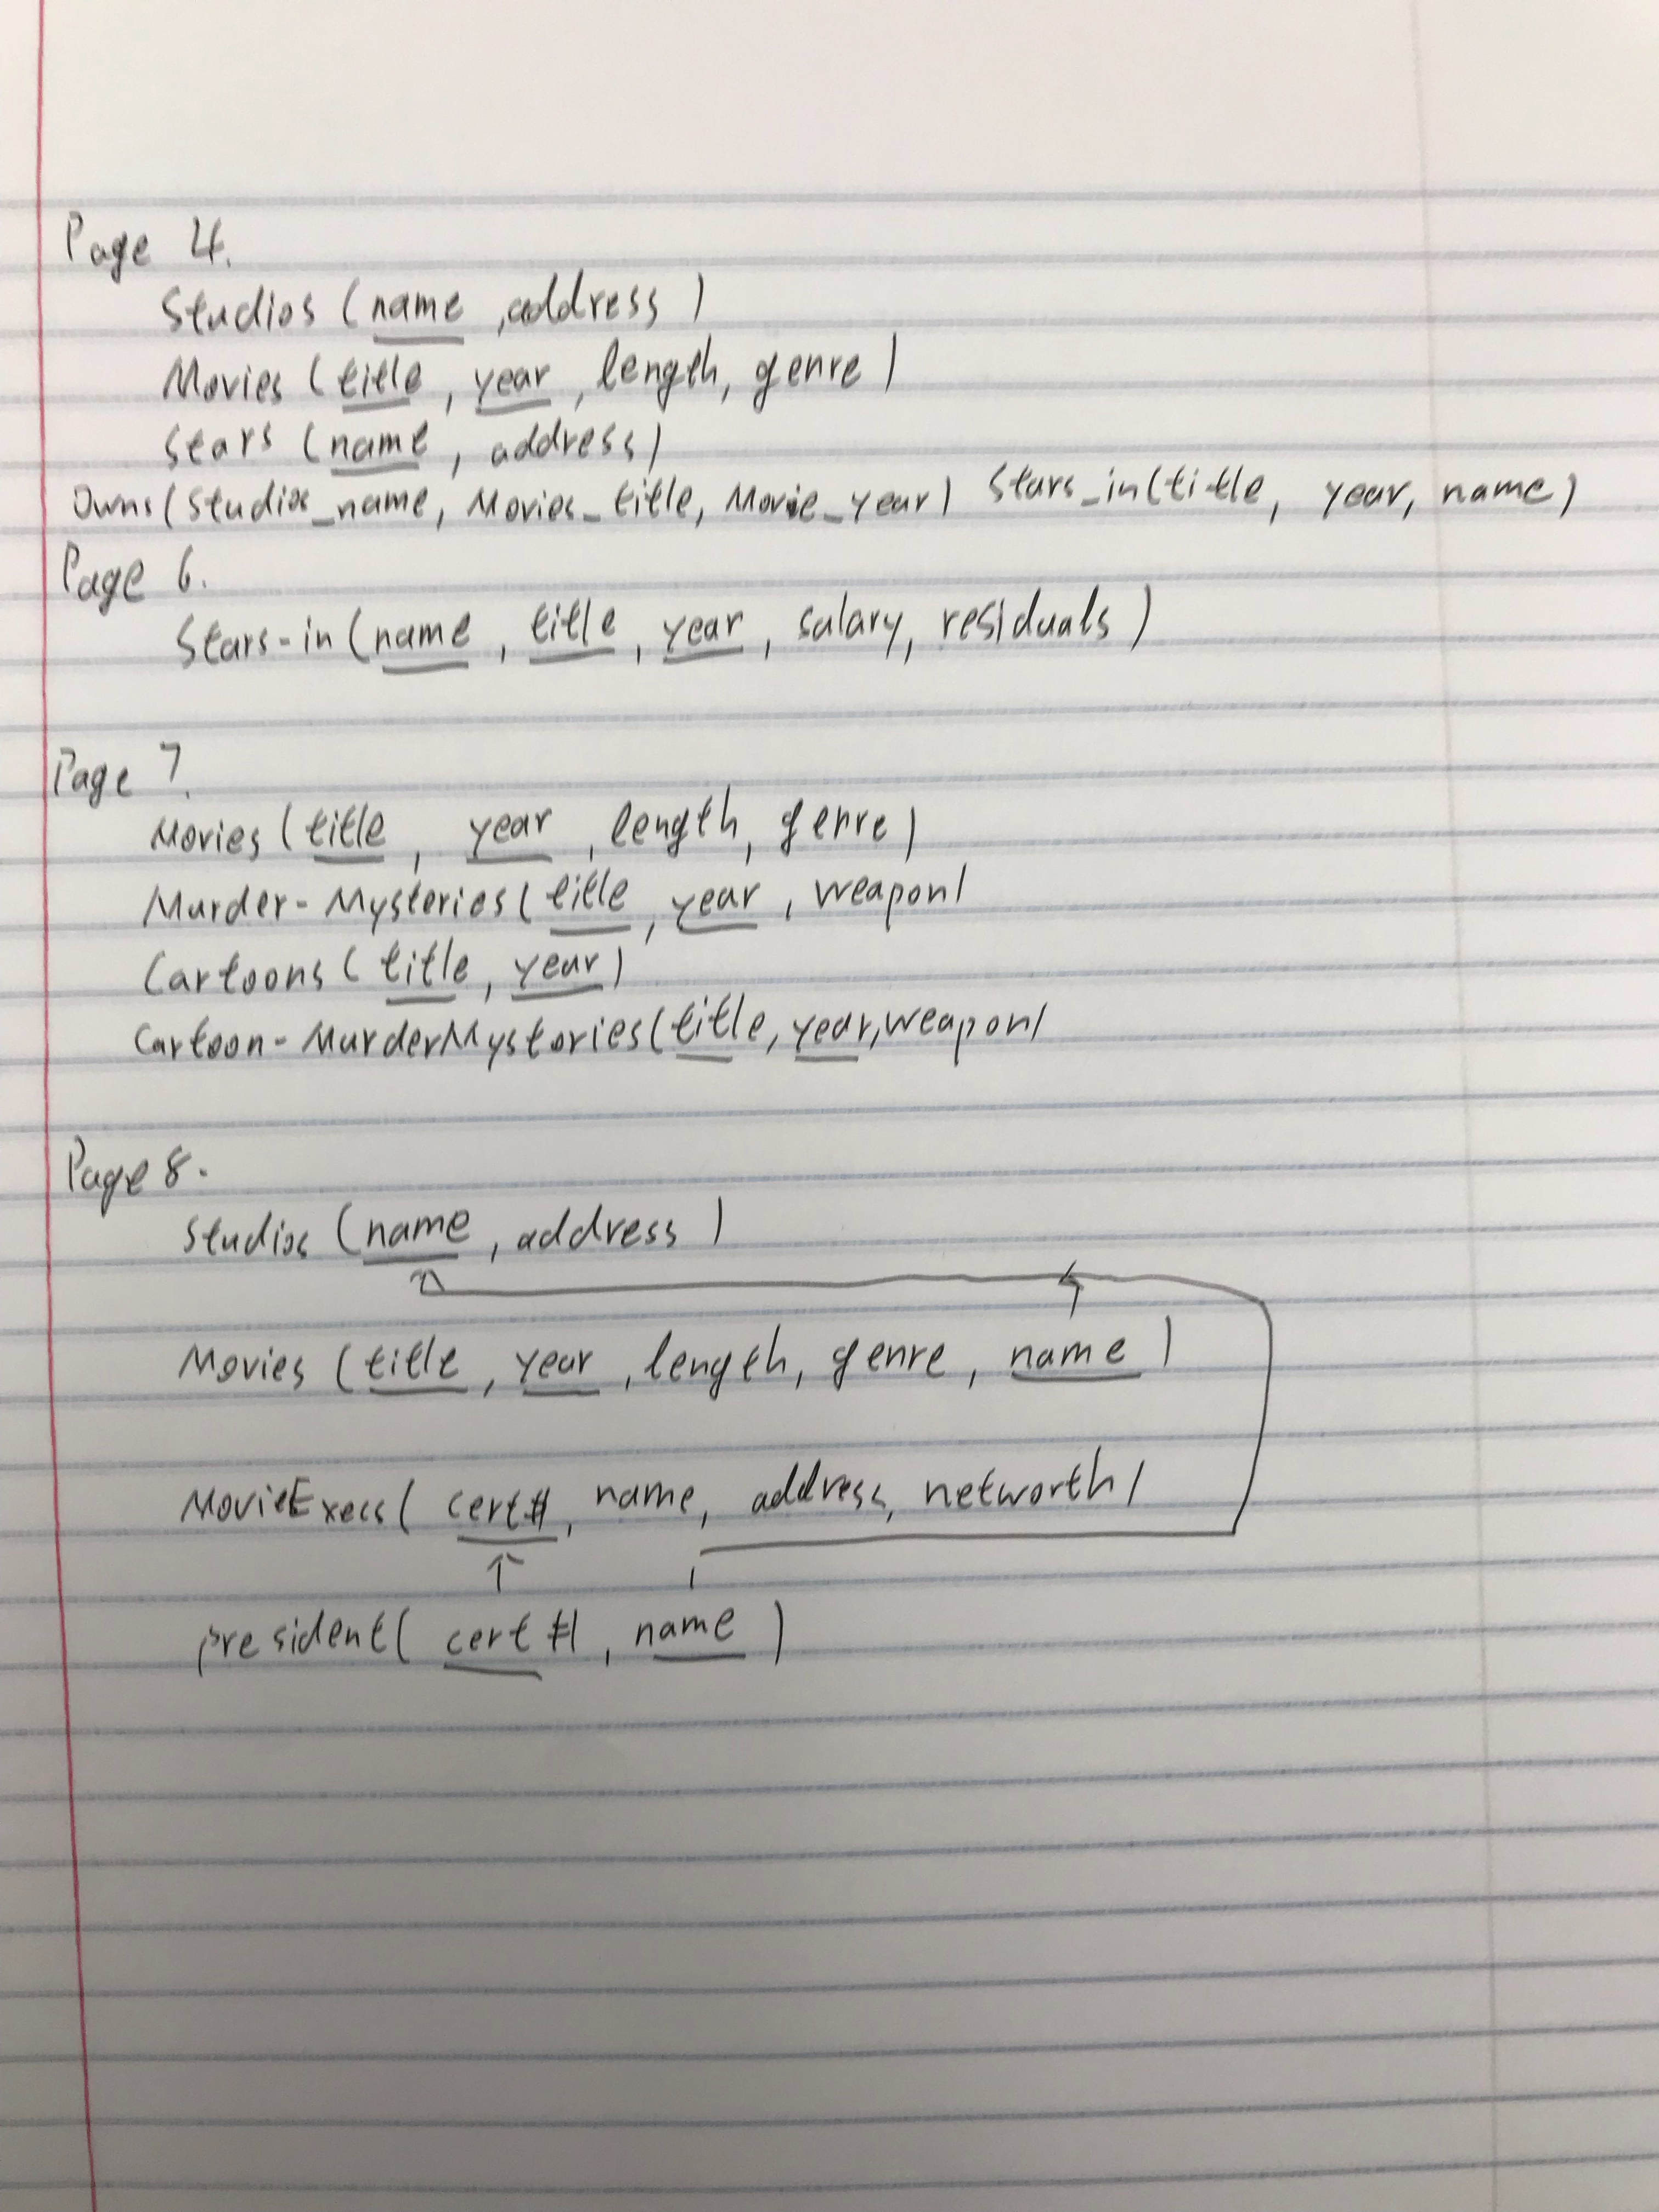 Page 4.
Studios (name, address)
Movies (title, year, length, genre)
Stars (name, address)
Owns(Studios_name, Movies_title, Movie_year) Stars_in(title, year, name)
Page 6.
Stars-in (name, title, year, salary, residuals)
Page 7.
Movies (title, year, length, genre)
Murder-Mysteries(title, year, weapon)
Cartoons (title, year)
Cartoon-MurderMystories(title, year, weapon)
Page 8.
Studios (name, address)
Movies (title, year, length, genre, name)
MovieExecs( cert#, name, address, networth)
president( cert#, name)